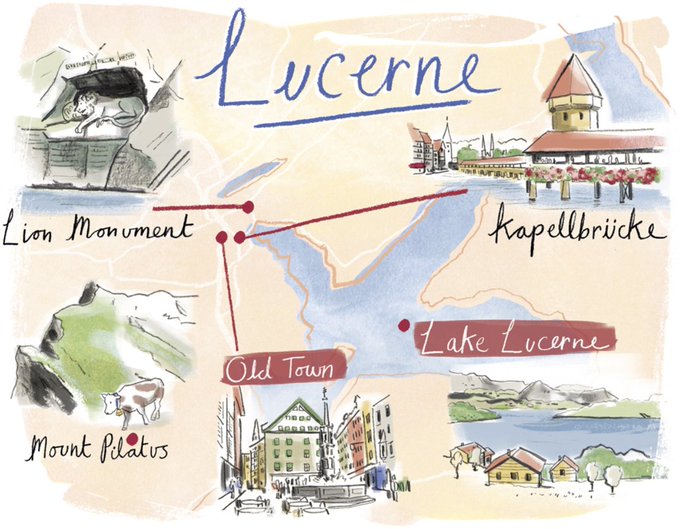 Lucerne
Lion Monument
Kapellbrücke
Old Town
Lake Lucerne
Mount Pilatus